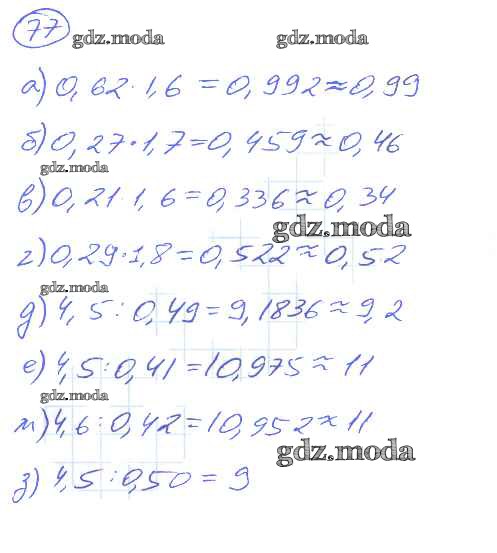 77
gdz.moda gdz.moda
а) 0,62·1,6 = 0,992≈0,99
б) 0,27·1,7=0,459≈0,46
gdz.moda
в) 0,21·1,6=0,336≈0,34
gdz.moda
г) 0,29·1,8=0,522≈0,52
gdz.moda
д) 4,5:0,49=9,1836≈9,2
е) 4,5:0,41=10,975≈11
gdz.moda
ж) 4,6:0,42=10,952≈11
gdz.moda
з) 4,5:0,50=9